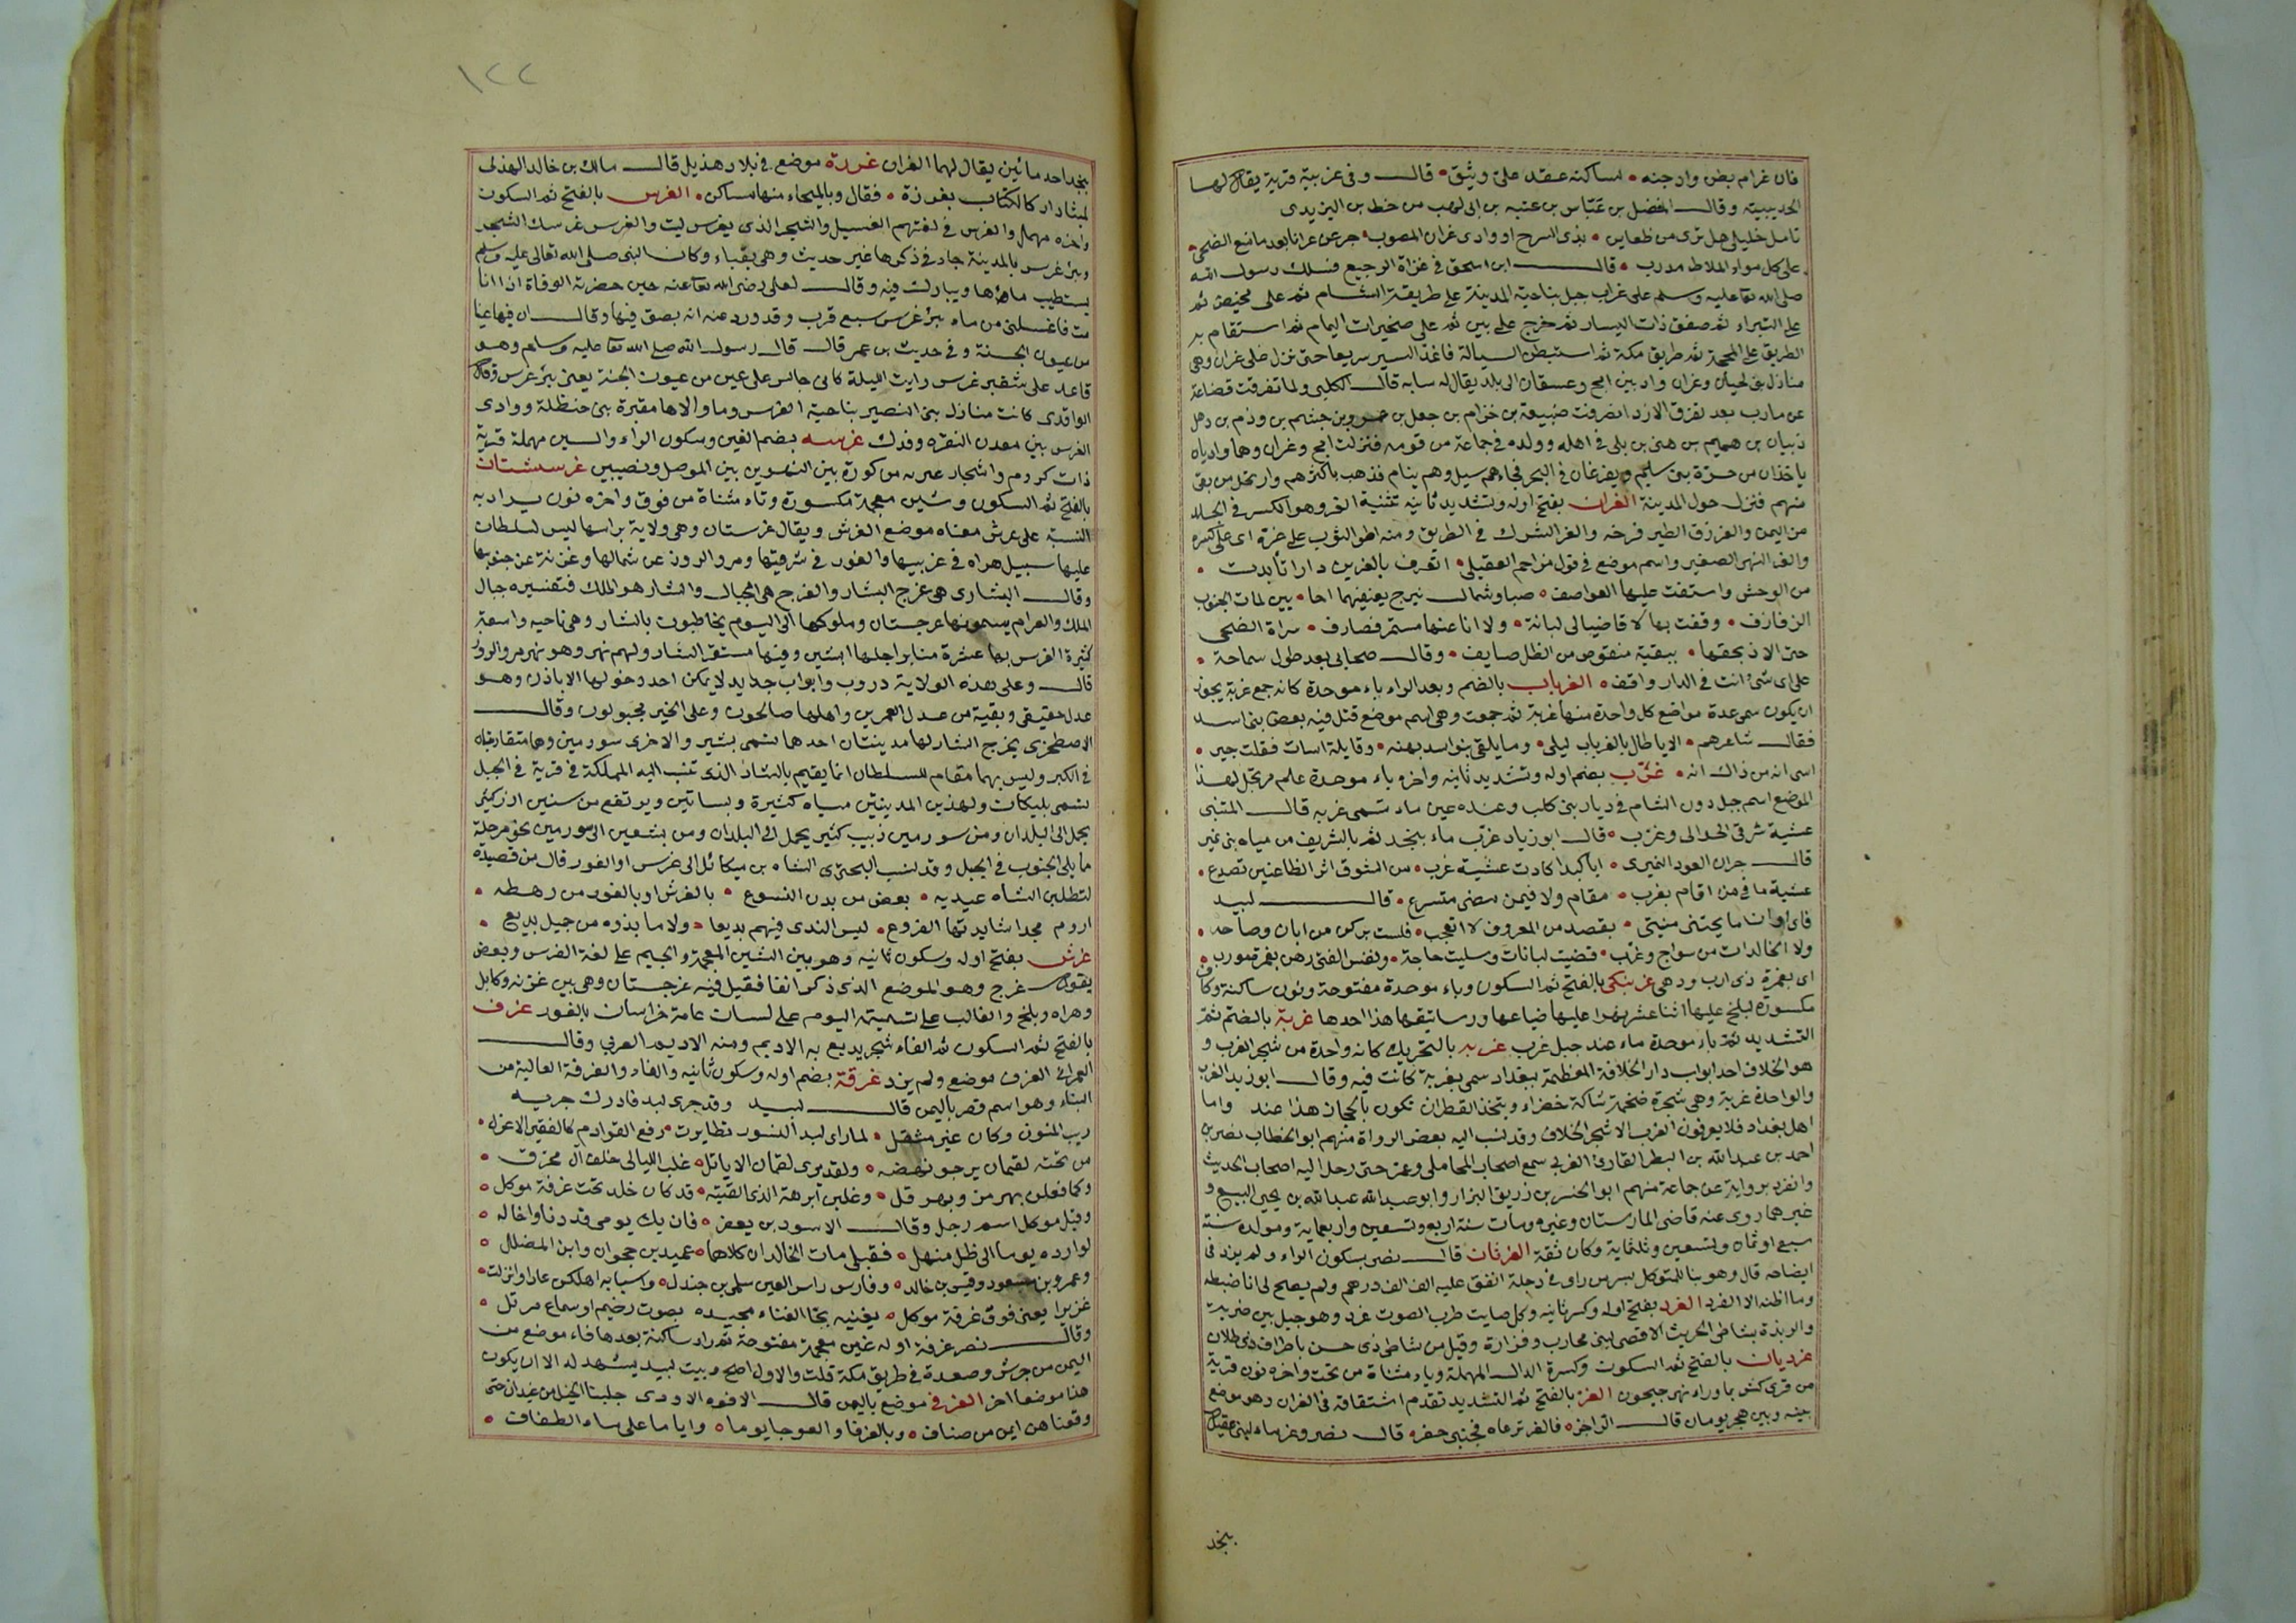 فان غرام بض وادجنه • لساكنه عقد على وثيق • قال وفى غربية قرية يقال لها
الحديبية وقال الفضل بن عباس بن عتبة بن ابى لهب من خط بن اليزيدى
تامل خليلى هل ترى من ظعاين • بذى السرح او وادى غران المصوب • جزعن غرانا بعد ما متع الضحى •
على كل موار الملاط مدرب • قال ابن اسحق فى غزاة الرجيع فسلك رسول الله
صلى الله تعا عليه وسلم على غراب جبل بناحية المدينة على طريقه الى الشام ثم على مخيض ثم
على البتراء ثم صفق ذات اليسار ثم خرج على بين ثم على صخيرات اليمام ثم استقام به
الطريق على المحجة ثم طريق مكة ثم استبطن السيالة فاغذ السير سريعا حتى نزل على غران وهى
منازل بنى لحيان وغران واد بين امج وعسفان الى بلد يقال له سايه قال الكلبى ولما تفرقت قضاعة
عن مارب بعد تفرق الازد انصرفت ضبيعة بن حزام بن جعل بن عمرو بن جشم بن وذم بن
ذبيان بن هميم بن هنى بن بلى فى اهله وولده فى جماعة من قومه فنزلت امج وغران وهما واديان
ياخذان من حرة بنى سليم ويفرغان فى البحر فجاءهم سيل وهم نيام فذهب باكثرهم وارتحل من بقى
منهم فنزل حول المدينة الغران بفتح اوله وتشديد ثانيه تثنية الغر وهو الكسر فى الجلد
من اليمن والغر زق الطير فرخه والغر الشرك فى الطريق ومنه اطو الثوب على غره اى على كسره
والغر النهر الصغير واسم موضع فى قول مزاحم العقيلى • اتعرف بالغرين دارا تابدت •
من الوحش واستفت عليها العواصف • صبا وشمال نيرج يعتفيهما احا • يين لمات الجنوب
الزفازف • وقفت بها لا قاضيا لى لبانة • ولا انا عنها مستمر فصارف • سراة الضحى
حتى الاذ بخفها • ببقية منقوص من الظل صايف • وقال صحابى بعد طول سماحة •
على اى شئ انت فى الدار واقف • الغربات بالضم وبعد الراء باء موحدة كانه جمع غربة يجوز
ان يكون سمى عدة مواضع كل واحدة منها غربة ثم جمعت وهى اسم موضع قتل فيه بعض بنى اسد
فقال شاعرهم • الا ياطال بالغربات ليلى • وما يلقى بنو اسد بهنه • وقايلة اسات فقلت جير •
اسى انه من ذاك انه • غرب بضم اوله وتشديد ثانيه واخره باء موحدة علم مرتجل لهذا
الموضع اسم جبل دون الشام فى ديار بنى كلب وعنده عين ماء تسمى غربه قال المتنبى
عشية شرقى الحدالى وغرب • قال ابو زياد غرب ماء بنجد ثم بالشريف من مياه بنى نمير
قال جران العود النميرى • ايا كبدا كادت عشية غرب • من الشوق اثر الظاعنين تصدع •
عشية ما فى من اقام بغرب • مقام ولا فيمن مضى متسرع • قال لبيد
فاى اوان ما يجتنى منيتى • بقصد من المعروف لا اتعجب • فلست بركن من ابان وصاحه •
ولا الخالدات من سواج وغرب • قضيت لبانات وسليت حاجة • ونفس الفتى رهن بغمرة مورب •
اى بغمرة ذى ارب ودهى غربنكى بالفتح ثم السكون وباء موحدة مفتوحة ونون ساكنة وكاف
مكسورة لبلخ عليها اثنا عشر نهرا عليها ضياعها ورساتيقها هذا احدها غربة بالضم ثم
التشديد ثم باء موحدة ماء عند جبل غرب غربه بالتحريك كانه واحدة من شجر الغرب و
هو الخلاف احد ابواب دار الخلافة المعظمة ببغداد سمى بغربة كانت فيه وقال ابو زيد الغرب
والواحدة غربة وهى شجرة ضخمة شاكة خضراء ويتخذ القطران تكون بالحجاز هذا عند واما
اهل بغداد فلا يعرفون الغرب الا شجر الخلاف وقد نسب اليه بعض الرواة منهم ابو الخطاب نصر بن
احمد بن عبد الله بن البطر القارئ الغربى سمع اصحاب المحاملى وعمر حتى رحل اليه اصحاب الحديث
وانفرد برواية عن جماعة منهم ابو الحسن بن زريق البزار وابو عبد الله عبد الله بن يحيى البيع و
غيرهما روى عنه قاضى المارستان وغيره ومات سنة اربع وتسعين واربعماية ومولده سنة
سبع او ثمان وتسعين وثلثماية وكان ثقة الغرثات قال نصر بسكون الراء ولم يزد فى
ايضاحه قال وهو بنا للمتوكل بسر من راى فى دجلة انفق عليه الف الف درهم ولم يصح لى انا ضبطه
وما اظنه الا الغرد الغرد بفتح اوله وكسر ثانيه وكل صايت طرب الصوت غرد وهو جبل بين ضرية
والربذة بشاطى الجريث الاقصى لبنى محارب وفزارة وقيل من شاطى ذى حسن باطراف ذى ظلال
غرديان بالفتح ثم السكون وكسرة الدال المهملة وياء مثناة من تحت واخره نون قرية
من قرى كش بما وراء نهر جيحون الغر بالفتح ثم التشديد تقدم اشتقاقه فى الغران وهو موضع
بينه وبين هجر يومان قال الراجز • فالغر ترعاه فجنبى جفر • قال نصر وغر ماء لبنى عقيل
بنجد
١٢٢
بنجد احد مائين يقال لهما الغران غررة موضع فى بلاد هذيل قال مالك بن خالد الهذلى
لميثاء دار كالكتاب بغرزة • فقال وبالميحاء منها مساكن • الغرس بالفتح ثم السكون
واخره مهمل والغرس فى لغتهم الفسيل والشجر الذى يغرس ليت والغرس غرسك الشجر
وبئر غرس بالمدينة جاء فى ذكرها غير حديث وهى بقباء وكان النبى صلى الله تعالى عليه وسلم
يستطيب ماءها ويبارك فيه وقال لعلى رضى الله تعا عنه حين حضرته الوفاة اذا انا
مت فاغسلنى من ماء بئر غرس سبع قرب وقد ورد عنه انه بصق فيها وقال ان فيها عينا
من عيون الجنة وفى حديث بن عمر قال قال رسول الله صلى الله تعا عليه وسلم وهو
قاعد على شفير غرس رايت الليلة كانى جالس على عين من عيون الجنة يعنى بئر غرس وقال
الواقدى كانت منازل بنى النضير بناحية الغرس وما والاها مقبرة بنى حنظلة ووادى
الغرس بين معدن النقره وفدك غرسه بضم الغين وسكون الراء والسين مهملة قرية
ذات كروم واشجار عبرية من كورة بين النهرين بين الموصل ونصيبين غرسشتان
بالفتح ثم السكون وشين معجمة مكسورة وتاء مثناة من فوق واخره نون يراد به
النسبة على غرش معناه موضع الغرش ويقال غرستان وهى ولاية براسها ليس لسلطان
عليها سبيل هراه فى غربيها والغور فى شرقيها ومرو الروذ عن شمالها وغزنة عن جنوبها
وقال البشارى هى غرج الشار والغرج هى الجبال والشار هو الملك فتفسيره جبال
الملك والعوام يسمونها غرجستان وملوكها الى اليوم يخاطبون بالشار وهى ناحيه واسعة
كثيرة الغرس بها عشرة منابر اجلها ابشين وفيها مستقر الشار ولهم نهر وهو نهر مرو الروذ
قال وعلى هذه الولاية دروب وابواب حديد لا يمكن احد دخولها الا باذن وهو
عدل حقيقى وبقية من عدل العمرين واهلها صالحون وعلى الخير مجبولون وقال
الاصطخرى يخرج الشار لها مدينتان احدها تسمى بشير والاخرى سورمين وهما متقاربتان
فى الكبر وليس بهما مقام للسلطان انما يقيم بالشار الذى تنسب اليه المملكة فى قرية فى الجبل
تسمى بليكات ولهذين المدينتين مياه كثيرة وبساتين ويرتفع من سنين ارز كثير
يحمل الى البلدان ومن سورمين زبيب كثير يحمل الى البلدان ومن بشين الى سورمين نحو مرحلة
ما يلى الجنوب فى الجبل وقد نسب البحترى الشاه بن ميكائل الى غرس او الغور قال من قصيدة
لتطلبن الشاه عيديه • بعض من بدن النسوع • بالغرش او بالغور من رهطه •
اروم مجد اسايدتها الفروع • ليس الندى فيهم بديعا • ولا ما بذوه من جيل بديع •
غرش بفتح اوله وسكون ثانيه وهو بين الشين المعجمة والجيم على لغة الفرس وبعض
يقول غرج وهو الموضع الذى ذكر انفا فقيل فيه غرجستان وهى بين غزنه وكابل
وهراه وبلخ والغالب على تسميته اليوم على لسان عامة خراسان بالغور غرف
بالفتح ثم السكون ثم الفاء شجر يدبغ به الاديم ومنه الاديم الغربى وقال
العمرانى الغرف موضع ولم يزد غرفة بضم اوله وسكون ثانيه والفاء والغرفة العالية من
البناء وهو اسم قصر باليمن قال لبيد وقد جرى لبد فادرك جريه
ريب المنون وكان غير مثقل • لما راى لبد النسور تطايرت • رفع القوادم كالفقير الاعزل •
من تحته لقمان يرجو نهضه • ولقد يرى لقمان الا ياتل • غلب الليالى خلف آل محرق •
وكما فعلن بهرمز وبهرقل • وغلبن ابرهة الذى الفيته • قد كان خلد تحت غرفة موكل •
وقيل موكل اسم رجل وقال الاسود بن يعفر • فان يك يومى قد دنا واخاله •
لوارده يوما الى ظل منهل • فقبلى مات الخالدان كلاهما • عميد بن جحوان وابن المضلل •
وعمرو بن مسعود وقيس بن خالد • وفارس راس العين سلمى بن جندل • واسبابه اهلكن عادا وانزلت •
عزيزا يعنى فوق غرفة موكل • يغنيه بحا الغناء مجيده بصوت رخيم او سماع مرتل •
وقال نصر غرفة اوله غين معجمة مفتوحة ثم راء ساكنة بعدها فاء موضع من
اليمن من جرش وصعدة فى طريق مكة قلت والاول اصح وبيت لبيد يشهد له الا ان يكون
هذا موضعا اخر الغرفى موضع باليمن قال الافوه الاودى جلبنا الخيل من غيدان حتى
وقعناهن ايمن من صناف • وبالغرفا والعرجا يوما • واياما على ماء الطفاف •